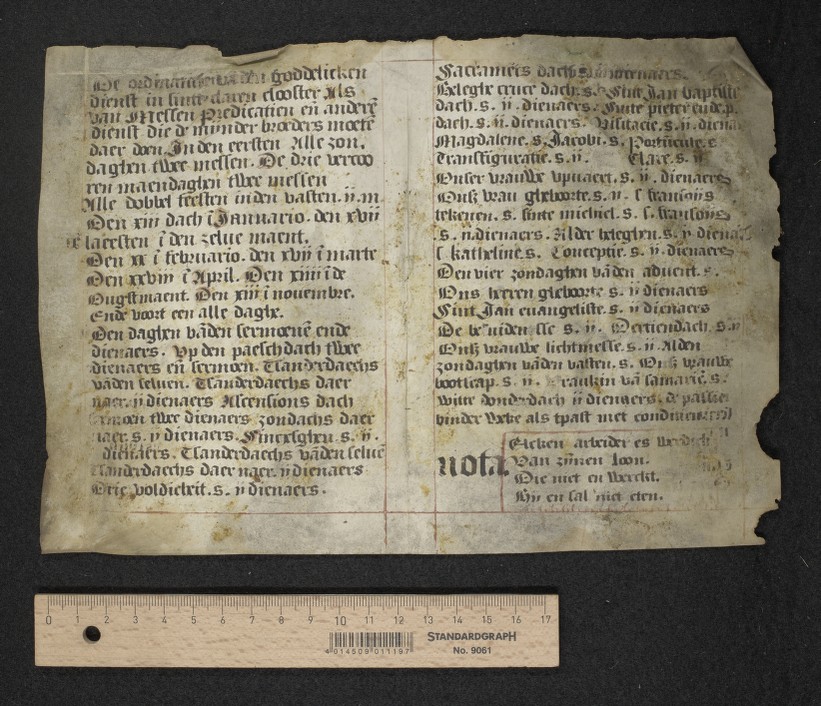 De ordinancie van den goddelicken
dienst in sinte claren clooster Als
van Messen Predicatien eñ anderē
dienst die de minder broeders moetē
daer doen. In den eersten Alle zon,
daghen twee messen. De drie
ren maendaghen twee messen
Alle dobbel feesten in den vasten. ij. m.
Den xiii dach ī Januario. den xvii
laetsten ī den zelue maent.
Den xx ī februario. den xvij ī marte
Den xxviij ī April. Den xiiij ī de
Ougstmaent. Den xiij ī nouembre.
Ende voort een alle daghe.
Den daghen vādēn sermoenē ende
dienaers. Up den paeschdach twee
dienaers en sermoen. Tsanderdaechs
vāden seluen. Tsanderdaechs daer
naer. ij dienaers Ascensions dach
twee dienaers zondachs daer
naer. s. ij dienaers. Sincxsghen. s. ij.
dienaers. Tsanderdaechs vāden seluē
Tsanderdaechs daer naer. ij dienaers
Drie voldicheit. s. ij dienaers.
Sacramēts dach
Beleghe cruce dach. s. Sint Jan baptiste
dach. s. ij. dienaers. Sinte pieter ende p.
dach. s. ij. dienaers. Visitacie. s. ij. diena
Magdalene. s. Jacobi. s. Portiūcule. s
Transfiguratie. s. ij. Clare. s. ij
Onser vrauwe vpuaert. s. ij. dienaers
Onß vrau gheboorte. s. ij. s franſois
tekenen. s. sinte michiel. s. s. franſois
s. ij. dienaers. Alder heleghen. s. ij. diena
s. katheline. s. Conceptie. s. ij. dienaers
Den vier zondaghen vāden aduent. s.
Ons heeren gheboorte s. ij dienaers
Sint Jan euangeliste. s. ij dienaers
De s. ij. Dertiendach. s. ij
Onß vrauwe lichtmesse. s. ij. Alden
zondaghen vāden vasten. s. Onß vrauwe
bootscap. s. ij. vā samarie. s.
Witte donderdach ij dienaers. de passie
vinder weke als tpast met
nota.
Elcken arbeider es werdich
Van zijnen loon.
Die niet en werckt.
Hij en sal niet eten.
0 1 2 3 4 5 6 7 8 9 10 11 12 13 14 15 16 17
4 014509 011197
STANDARDGRAPH
No. 9061